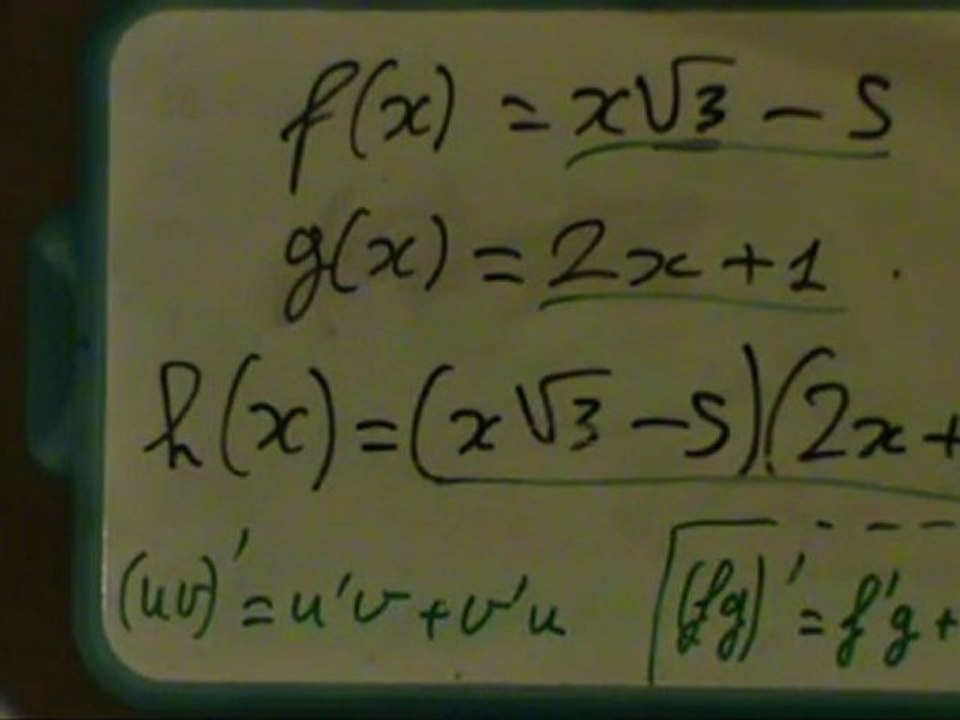 f(x) = x√3 − 5
g(x) = 2x + 1 .
h(x) = (x√3 − 5)(2x +
(uv)' = u'v + v'u (fg)' = f'g +